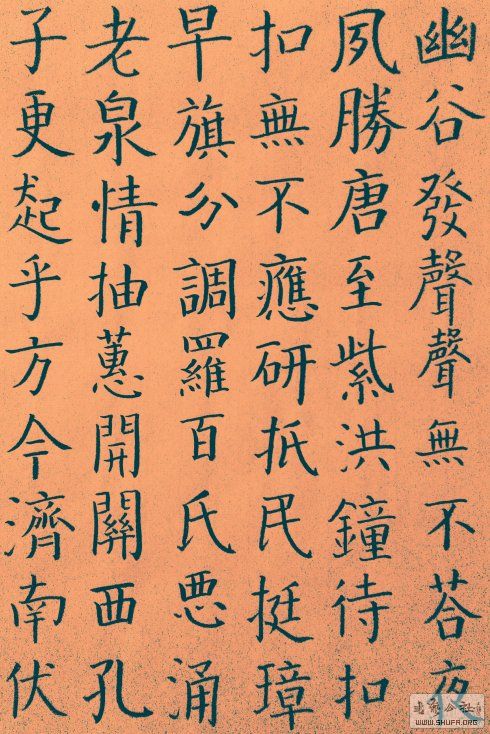 幽谷發聲聲無不荅夜
夙勝唐至紫洪鐘待扣
扣無不應研扺民挺璋
早旗分調羅百氏涌
老泉情抽蕙開關西孔
子更起乎方今濟南伏
WWW.SHUFA.ORG